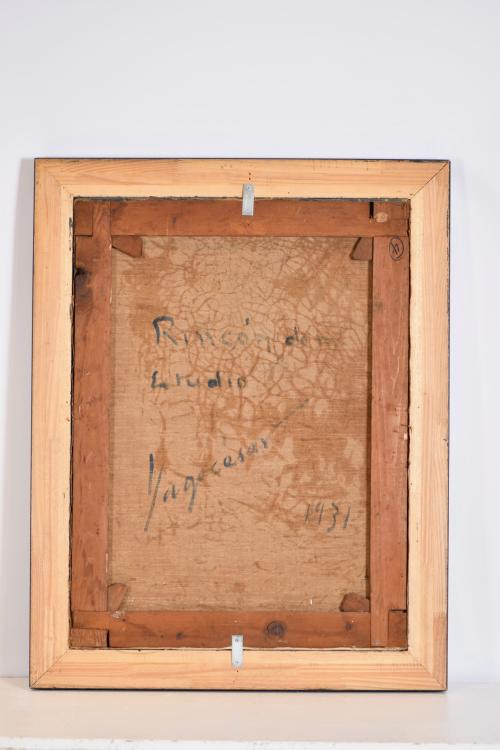 Rincón de
Estudio
Yagocésar
1931